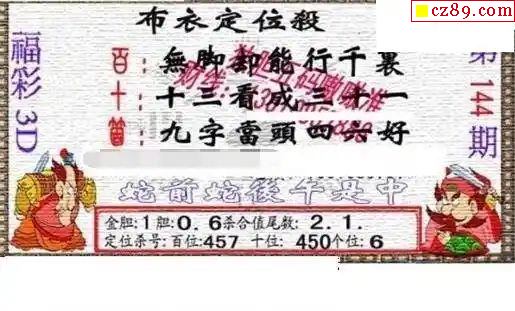 cz89.com
布衣定位殺
福彩3D
第144期
百：無脚却能行千裏
十：十三看成三十一
個：九字當頭四六好
蛇前蛇後午是中
金胆:1胆:0.6杀合值尾数: 2.1.
定位杀号:百位:457 十位: 450个位:6